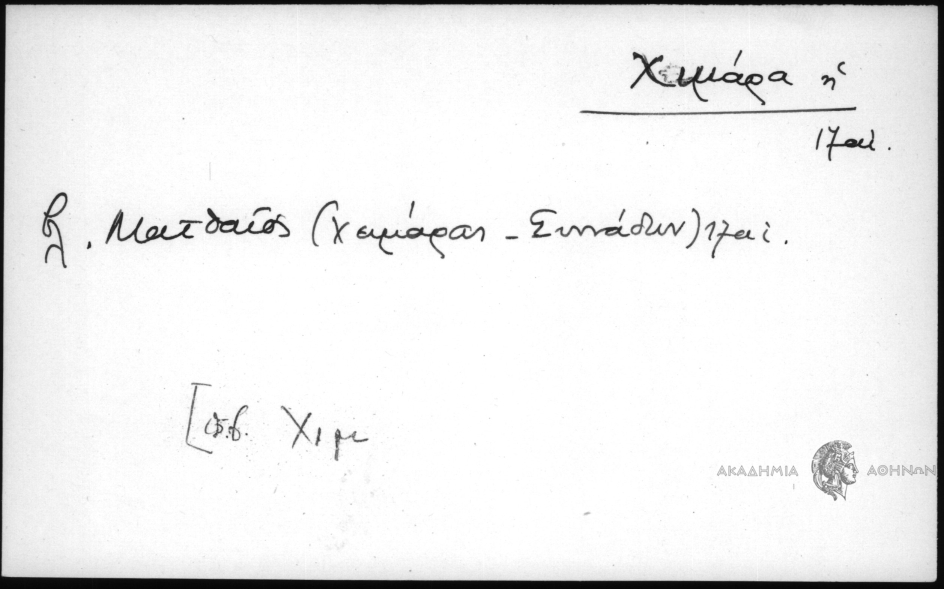 Χιμάρα ἡ
17 αἰ.
βλ. Ματθαῖος (Χειμάρας - Συννάδων) 17 αἰ.
[πβ. Χιμ
ΑΚΑΔΗΜΙΑ ΑΘΗΝΩΝ